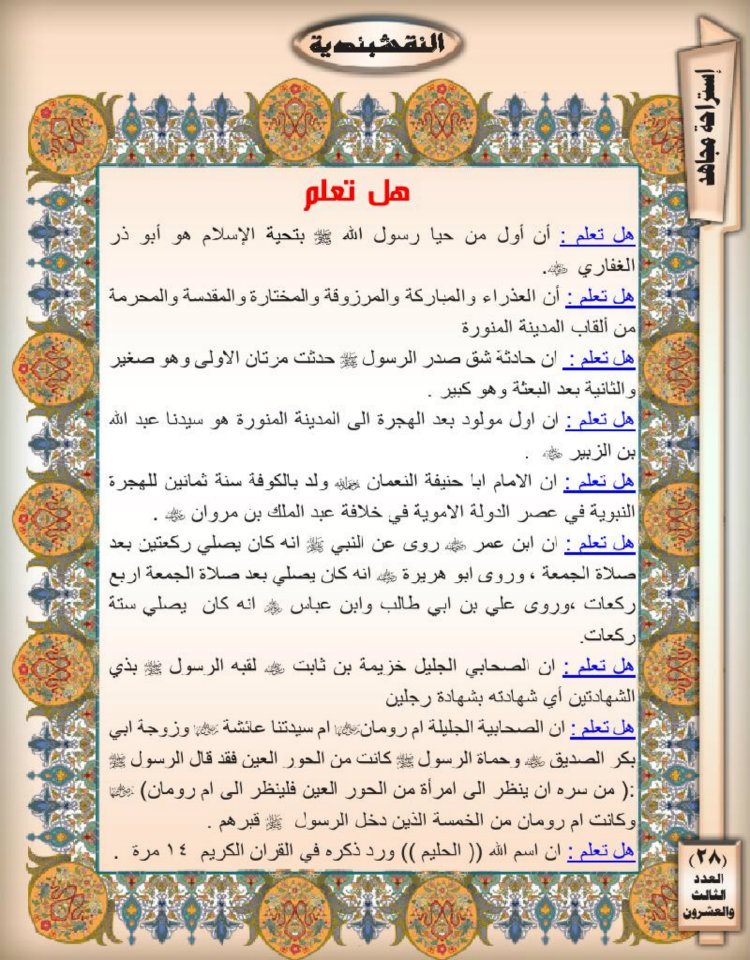 النقشبندية
إستراحة مجاهد
هل تعلم
هل تعلم : أن أول من حيا رسول الله ﷺ بتحية الإسلام هو أبو ذر
الغفاري .
هل تعلم : أن العذراء والمباركة والمرزوقة والمختارة والمقدسة والمحرمة
من ألقاب المدينة المنورة
هل تعلم : ان حادثة شق صدر الرسول ﷺ حدثت مرتان الاولى وهو صغير
والثانية بعد البعثة وهو كبير .
هل تعلم : ان اول مولود بعد الهجرة الى المدينة المنورة هو سيدنا عبد الله
بن الزبير .
هل تعلم : ان الامام ابا حنيفة النعمان ولد بالكوفة سنة ثمانين للهجرة
النبوية في عصر الدولة الاموية في خلافة عبد الملك بن مروان .
هل تعلم : ان ابن عمر روى عن النبي ﷺ انه كان يصلي ركعتين بعد
صلاة الجمعة ، وروى ابو هريرة انه كان يصلي بعد صلاة الجمعة اربع
ركعات ،وروى علي بن ابي طالب وابن عباس انه كان يصلي ستة
ركعات.
هل تعلم : ان الصحابي الجليل خزيمة بن ثابت لقبه الرسول ﷺ بذي
الشهادتين أي شهادته بشهادة رجلين
هل تعلم : ان الصحابية الجليلة ام رومان ام سيدتنا عائشة وزوجة ابي
بكر الصديق وحماة الرسول ﷺ كانت من الحور العين فقد قال الرسول ﷺ
:( من سره ان ينظر الى امرأة من الحور العين فلينظر الى ام رومان)
وكانت ام رومان من الخمسة الذين دخل الرسول ﷺ قبرهم .
هل تعلم : ان اسم الله (( الحليم )) ورد ذكره في القران الكريم ١٤ مرة .
(٢٨)
العدد
الثالث
والعشرون